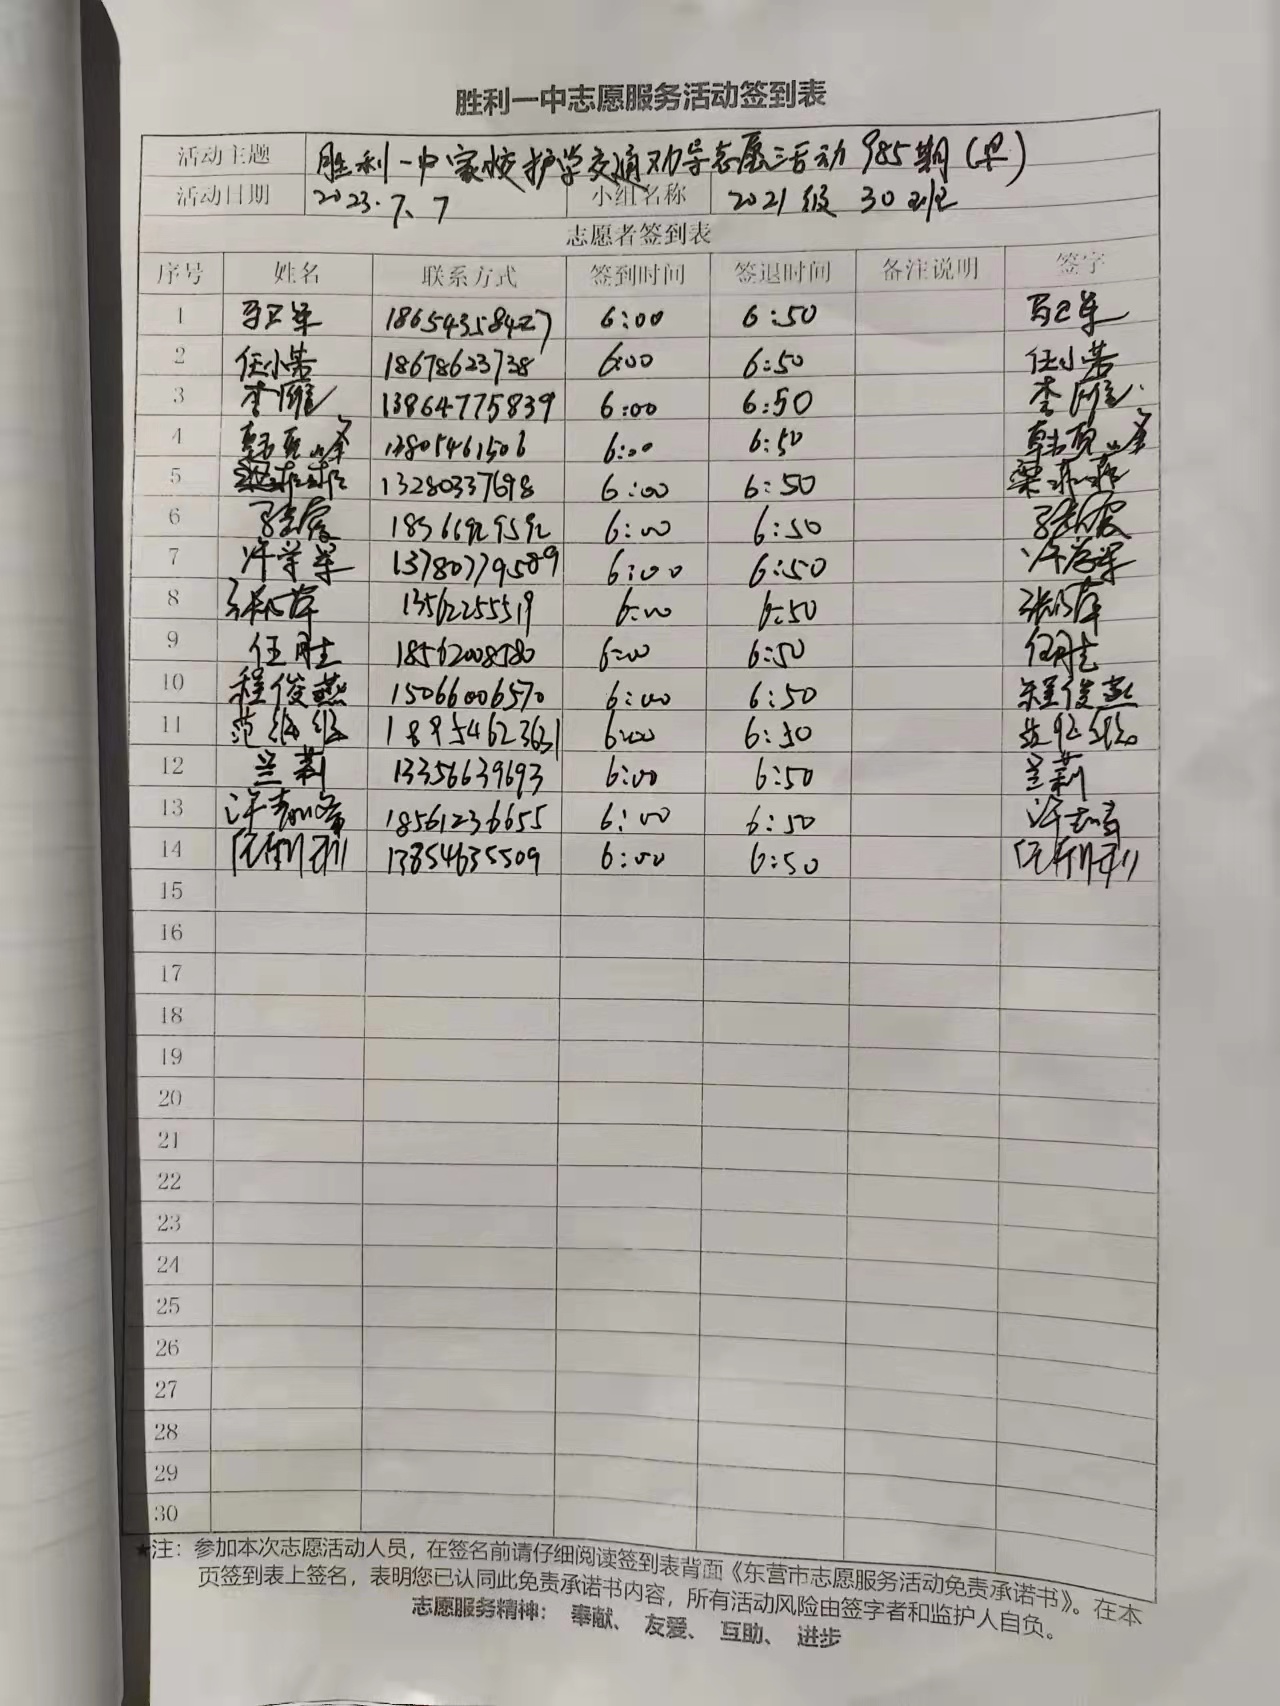 胜利一中志愿服务活动签到表
活动主题 胜利一中家校护学交通劝导志愿活动 985期（早）
活动日期 2023.7.7 小组名称 2021级 30班
志愿者签到表
序号 姓名 联系方式 签到时间 签退时间 备注说明 签字
1 马卫军 18654358427 6:00 6:50 马卫军
2 任小芳 18678623738 6:00 6:50 任小芳
3 李 13864775839 6:00 6:50 李
4 韩 13805461506 6:00 6:50 韩
5 梁菲菲 13280337698 6:00 6:50 梁菲菲
6 6:00 6:50
7 许学军 13780779589 6:00 6:50 许学军
8 张 13562255519 6:00 6:50 张
9 任胜 18562008580 6:00 6:50 任胜
10 程俊燕 15066006570 6:00 6:50 程俊燕
11 范 18954623631 6:00 6:50 范
12 兰莉 13356639693 6:00 6:50 兰莉
13 许 18561236655 6:00 6:50 许
14 13854635509 6:00 6:50
15
16
17
18
19
20
21
22
23
24
25
26
27
28
29
30
★注：参加本次志愿活动人员，在签名前请仔细阅读签到表背面《东营市志愿服务活动免责承诺书》。在本
页签到表上签名，表明您已认同此免责承诺书内容，所有活动风险由签字者和监护人自负。
志愿服务精神： 奉献、 友爱、 互助、 进步